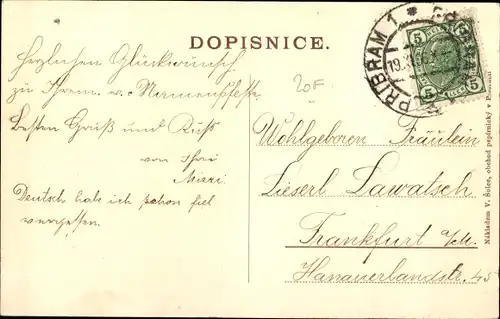 DOPISNICE.
Herzlichen Glückwunsch
zu Ihrem w. Namensfeste.
Besten Gruß und Kuß
von Ihrer
Mizzi.
Deutsch hab ich schon fiel
vergessen.
20F
PŘIBRAM 1
19.X
5 5
5 5
Wohlgeboren Fräulein
Lieserl Lawatsch
Frankfurt a/M.
Hanauerlandstr. 45
Nákladem V. Šolce, obchod papírnický v